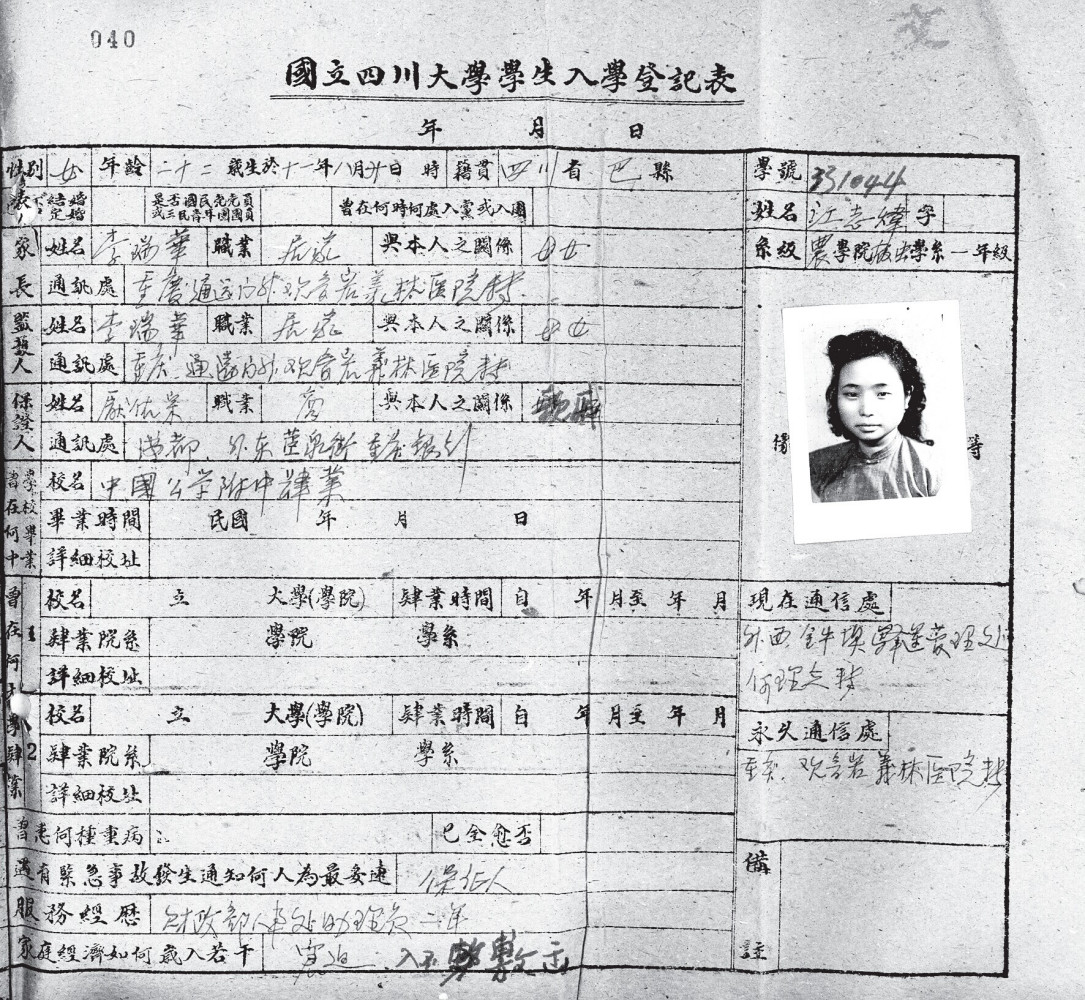 040
國立四川大學學生入學登記表
年 月 日
性別 女 年齡 二十二 歲生於十一年八月廿日 時 籍貫 四川省巴縣
結婚 定婚 是否國民黨黨員或三民青年團團員 曾在何時何處入黨或入團
家長 姓名 李瑞華 職業 與本人之關係 母女
通訊處 重慶通远门外观音岩義林医院转
監護人 姓名 李瑞華 職業 與本人之關係 母女
通訊處 重庆.通遠门外.观音岩義林医院转
保證人 姓名 職業 商 與本人之關係
通訊處 成都.外东
曾在何中學校畢業 校名 中國公学附中肄業
畢業時間 民國 年 月 日
詳細校址
曾在何大學肄業
1 校名 立 大學(學院) 肄業時間 自 年 月至 年 月
肄業院系 學院 學系
詳細校址
2 校名 立 大學(學院) 肄業時間 自 年 月至 年 月
肄業院系 學院 學系
詳細校址
曾患何種重病 已全愈否
遇有緊急事故發生通知何人為最妥速 保证人
服務經歷 財政部人事处助理员二年
家庭經濟如何歲入若干 窘迫 入不敷出
學號 331044
姓名 江志煒 字
系級 農學院 學系一年級
備 等
現在通信處
外西 管理处
何理之转
永久通信處
重庆.观音岩義林医院转
備註